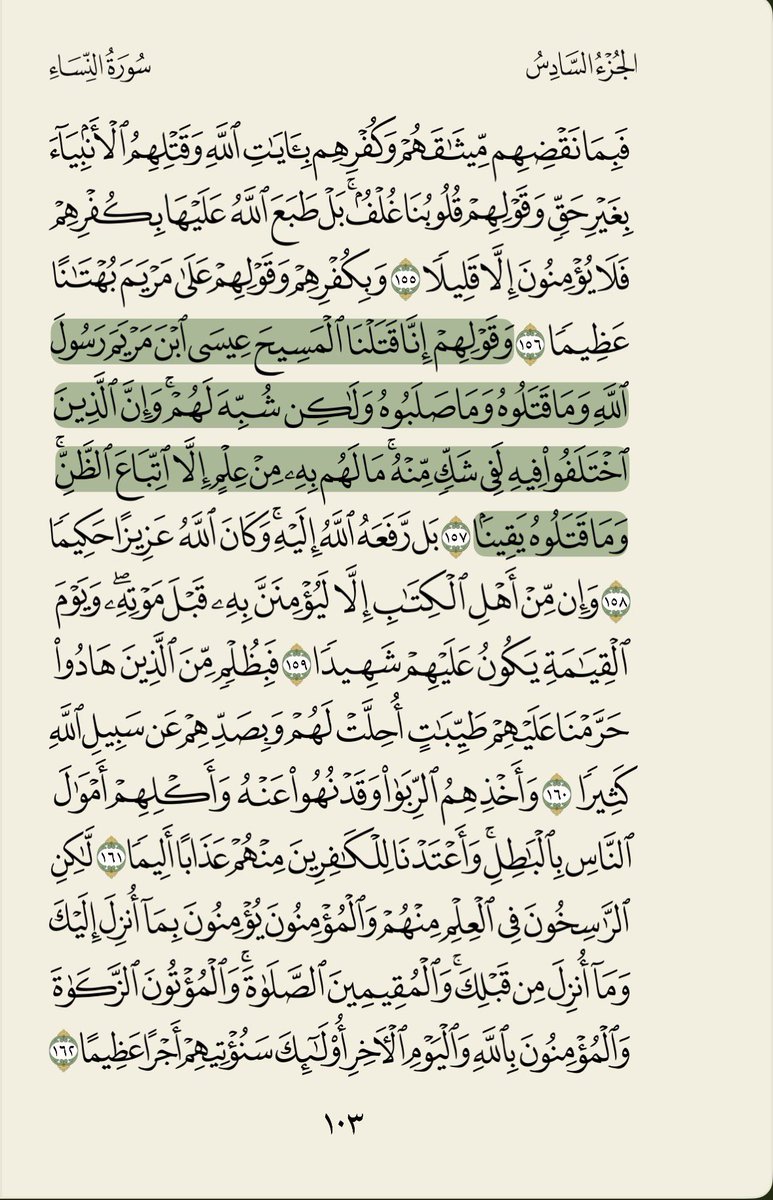 الجُزْءُ السَّادِسُ
سُورَةُ النِّسَاءِ
فَبِمَا نَقْضِهِم مِّيثَٰقَهُمْ وَكُفْرِهِم بِـَٔايَٰتِ ٱللَّهِ وَقَتْلِهِمُ ٱلْأَنۢبِيَآءَ
بِغَيْرِ حَقٍّ وَقَوْلِهِمْ قُلُوبُنَا غُلْفُۢ ۚ بَلْ طَبَعَ ٱللَّهُ عَلَيْهَا بِكُفْرِهِمْ
فَلَا يُؤْمِنُونَ إِلَّا قَلِيلًا ١٥٥ وَبِكُفْرِهِمْ وَقَوْلِهِمْ عَلَىٰ مَرْيَمَ بُهْتَٰنًا
عَظِيمًا ١٥٦ وَقَوْلِهِمْ إِنَّا قَتَلْنَا ٱلْمَسِيحَ عِيسَى ٱبْنَ مَرْيَمَ رَسُولَ
ٱللَّهِ وَمَا قَتَلُوهُ وَمَا صَلَبُوهُ وَلَٰكِن شُبِّهَ لَهُمْ ۚ وَإِنَّ ٱلَّذِينَ
ٱخْتَلَفُوا۟ فِيهِ لَفِى شَكٍّ مِّنْهُ ۚ مَا لَهُم بِهِۦ مِنْ عِلْمٍ إِلَّا ٱتِّبَاعَ ٱلظَّنِّ ۚ
وَمَا قَتَلُوهُ يَقِينًۢا ١٥٧ بَل رَّفَعَهُ ٱللَّهُ إِلَيْهِ ۚ وَكَانَ ٱللَّهُ عَزِيزًا حَكِيمًا
١٥٨ وَإِن مِّنْ أَهْلِ ٱلْكِتَٰبِ إِلَّا لَيُؤْمِنَنَّ بِهِۦ قَبْلَ مَوْتِهِۦ ۖ وَيَوْمَ
ٱلْقِيَٰمَةِ يَكُونُ عَلَيْهِمْ شَهِيدًا ١٥٩ فَبِظُلْمٍ مِّنَ ٱلَّذِينَ هَادُوا۟
حَرَّمْنَا عَلَيْهِمْ طَيِّبَٰتٍ أُحِلَّتْ لَهُمْ وَبِصَدِّهِمْ عَن سَبِيلِ ٱللَّهِ
كَثِيرًا ١٦٠ وَأَخْذِهِمُ ٱلرِّبَوٰا۟ وَقَدْ نُهُوا۟ عَنْهُ وَأَكْلِهِمْ أَمْوَٰلَ
ٱلنَّاسِ بِٱلْبَٰطِلِ ۚ وَأَعْتَدْنَا لِلْكَٰفِرِينَ مِنْهُمْ عَذَابًا أَلِيمًا ١٦١ لَّٰكِنِ
ٱلرَّٰسِخُونَ فِى ٱلْعِلْمِ مِنْهُمْ وَٱلْمُؤْمِنُونَ يُؤْمِنُونَ بِمَآ أُنزِلَ إِلَيْكَ
وَمَآ أُنزِلَ مِن قَبْلِكَ ۚ وَٱلْمُقِيمِينَ ٱلصَّلَوٰةَ ۚ وَٱلْمُؤْتُونَ ٱلزَّكَوٰةَ
وَٱلْمُؤْمِنُونَ بِٱللَّهِ وَٱلْيَوْمِ ٱلْـَٔاخِرِ أُو۟لَٰٓئِكَ سَنُؤْتِيهِمْ أَجْرًا عَظِيمًا ١٦٢
١٠٣